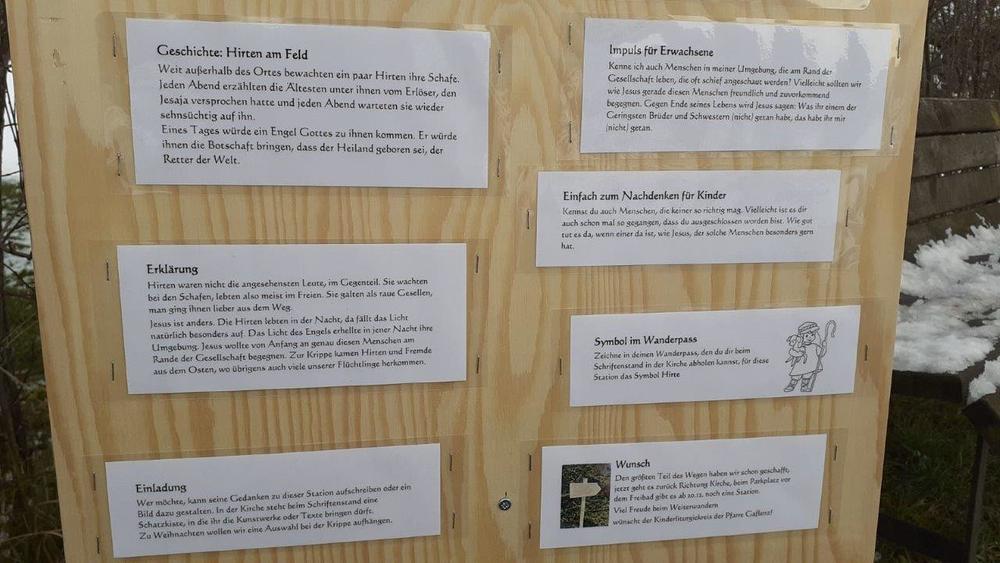 Geschichte: Hirten am Feld
Weit außerhalb des Ortes bewachten ein paar Hirten ihre Schafe.
Jeden Abend erzählten die Ältesten unter ihnen vom Erlöser, den
Jesaja versprochen hatte und jeden Abend warteten sie wieder
sehnsüchtig auf ihn.
Eines Tages würde ein Engel Gottes zu ihnen kommen. Er würde
ihnen die Botschaft bringen, dass der Heiland geboren sei, der
Retter der Welt.
Erklärung
Hirten waren nicht die angesehensten Leute, im Gegenteil. Sie wachten
bei den Schafen, lebten also meist im Freien. Sie galten als raue Gesellen,
man ging ihnen lieber aus dem Weg.
Jesus ist anders. Die Hirten lebten in der Nacht, da fällt das Licht
natürlich besonders auf. Das Licht des Engels erhellte in jener Nacht ihre
Umgebung. Jesus wollte von Anfang an genau diesen Menschen am
Rande der Gesellschaft begegnen. Zur Krippe kamen Hirten und Fremde
aus dem Osten, wo übrigens auch viele unserer Flüchtlinge herkommen.
Einladung
Wer möchte, kann seine Gedanken zu dieser Station aufschreiben oder ein
Bild dazu gestalten. In der Kirche steht beim Schriftenstand eine
Schatzkiste, in die ihr die Kunstwerke oder Texte bringen dürft.
Zu Weihnachten wollen wir eine Auswahl bei der Krippe aufhängen.
Impuls für Erwachsene
Kenne ich auch Menschen in meiner Umgebung, die am Rand der
Gesellschaft leben, die oft schief angeschaut werden? Vielleicht sollten wir
wie Jesus gerade diesen Menschen freundlich und zuvorkommend
begegnen. Gegen Ende seines Lebens wird Jesus sagen: Was ihr einem der
Geringsten Brüder und Schwestern (nicht) getan habt, das habt ihr mir
(nicht) getan.
Einfach zum Nachdenken für Kinder
Kennst du auch Menschen, die keiner so richtig mag. Vielleicht ist es dir
auch schon mal so gegangen, dass du ausgeschlossen worden bist. Wie gut
tut es da, wenn einer da ist, wie Jesus, der solche Menschen besonders gern
hat.
Symbol im Wanderpass
Zeichne in deinen Wanderpass, den du dir beim
Schriftenstand in der Kirche abholen kannst, für diese
Station das Symbol Hirte
Wunsch
Den größten Teil des Weges haben wir schon geschafft,
jetzt geht es zurück Richtung Kirche, beim Parkplatz vor
dem Freibad gibt es ab 20.12. noch eine Station.
Viel Freude beim Weiterwandern
wünscht der Kinderliturgiekreis der Pfarre Gaflenz!